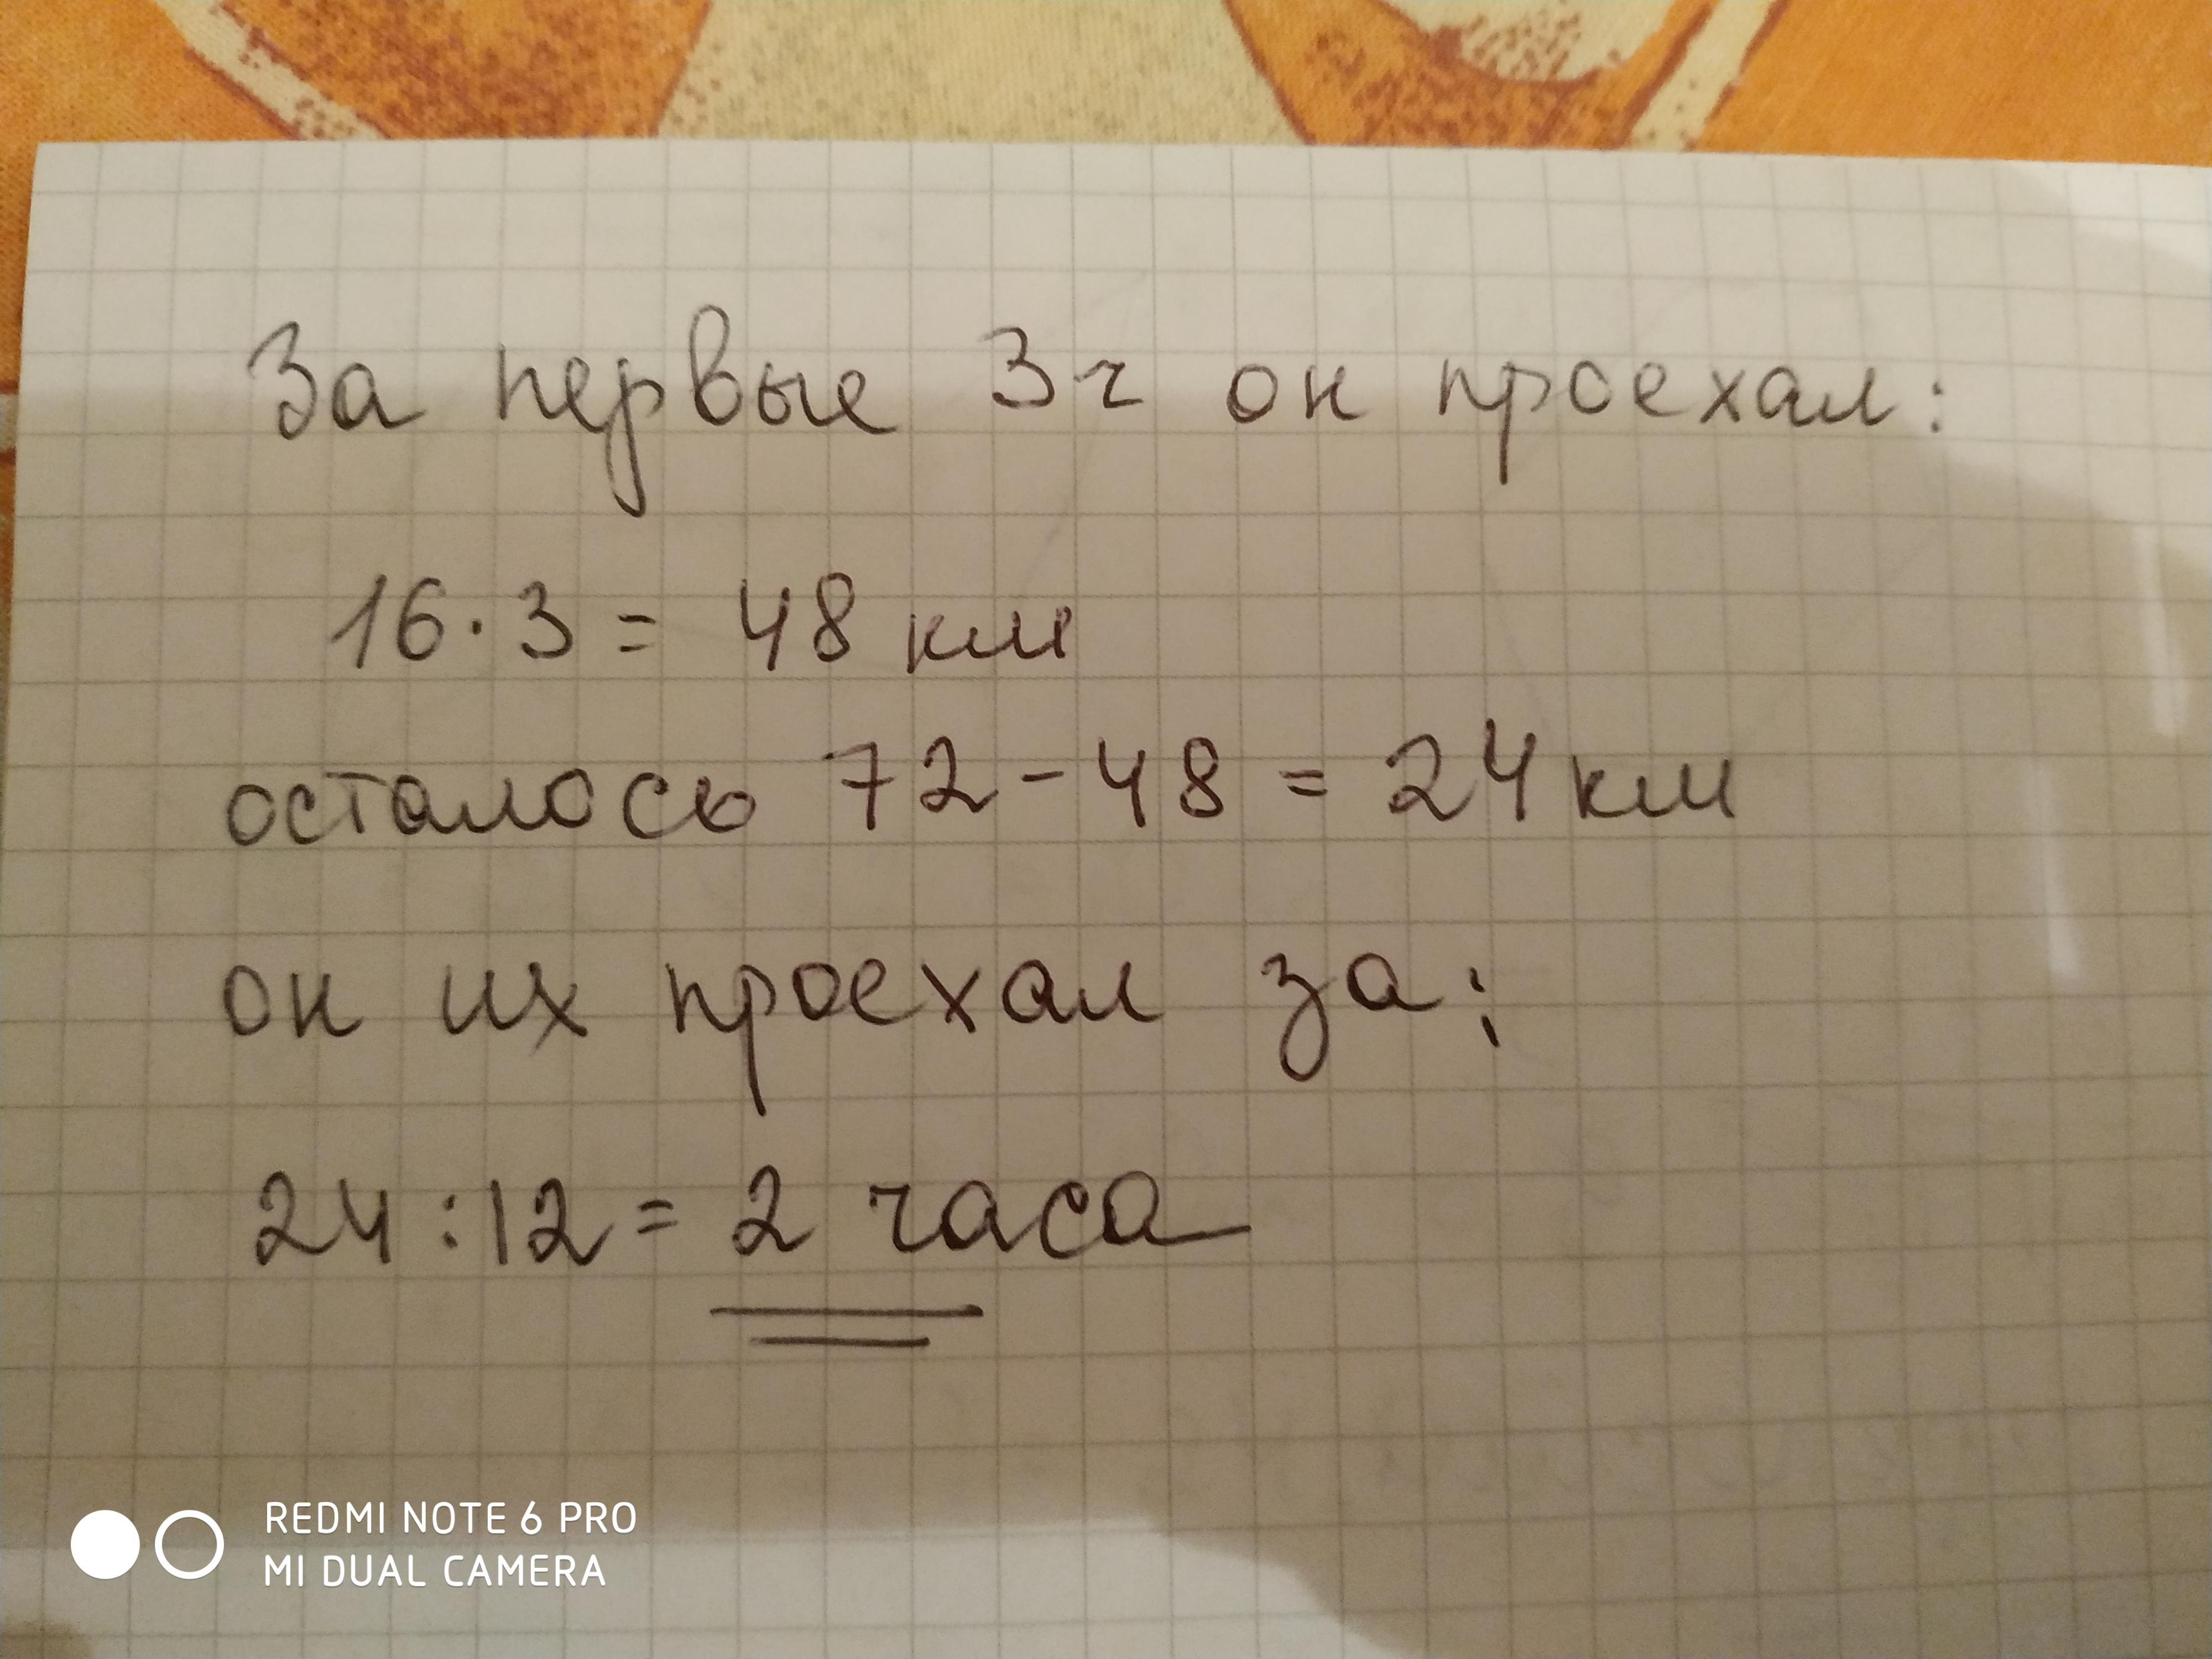 За первые 3ч он проехал:
16·3= 48 км
осталось 72-48 = 24 км
он их проехал за:
24:12= 2 часа
REDMI NOTE 6 PRO
MI DUAL CAMERA